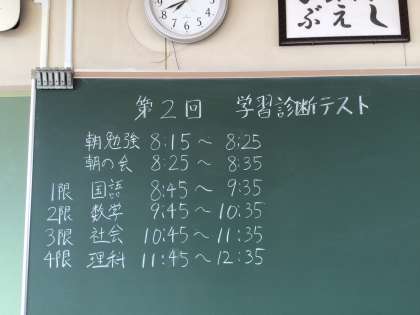 第2回 学習診断テスト
朝勉強 8:15〜8:25
朝の会 8:25〜8:35
1限 国語 8:45〜9:35
2限 数学 9:45〜10:35
3限 社会 10:45〜11:35
4限 理科 11:45〜12:35